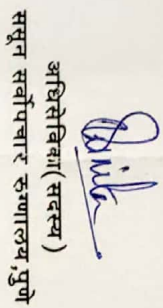 अधिसेविका(सदस्य)
ससून सर्वोपचार रुग्णालय,पुणे